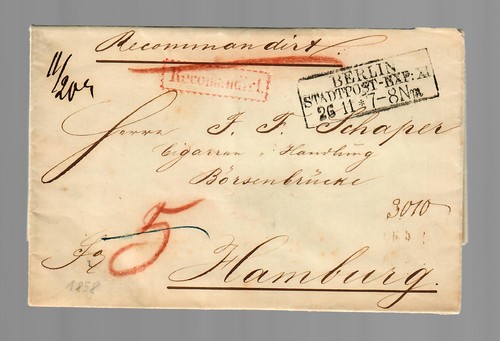 Recommandirt.
Recomandirt.
BERLIN
STADTPOST-EXP: XI
26 11 * 7-8 N M
Herrn J. F. Schaper
Cigarren Handlung
Börsenbrücke
3010
5
Hamburg.
1858